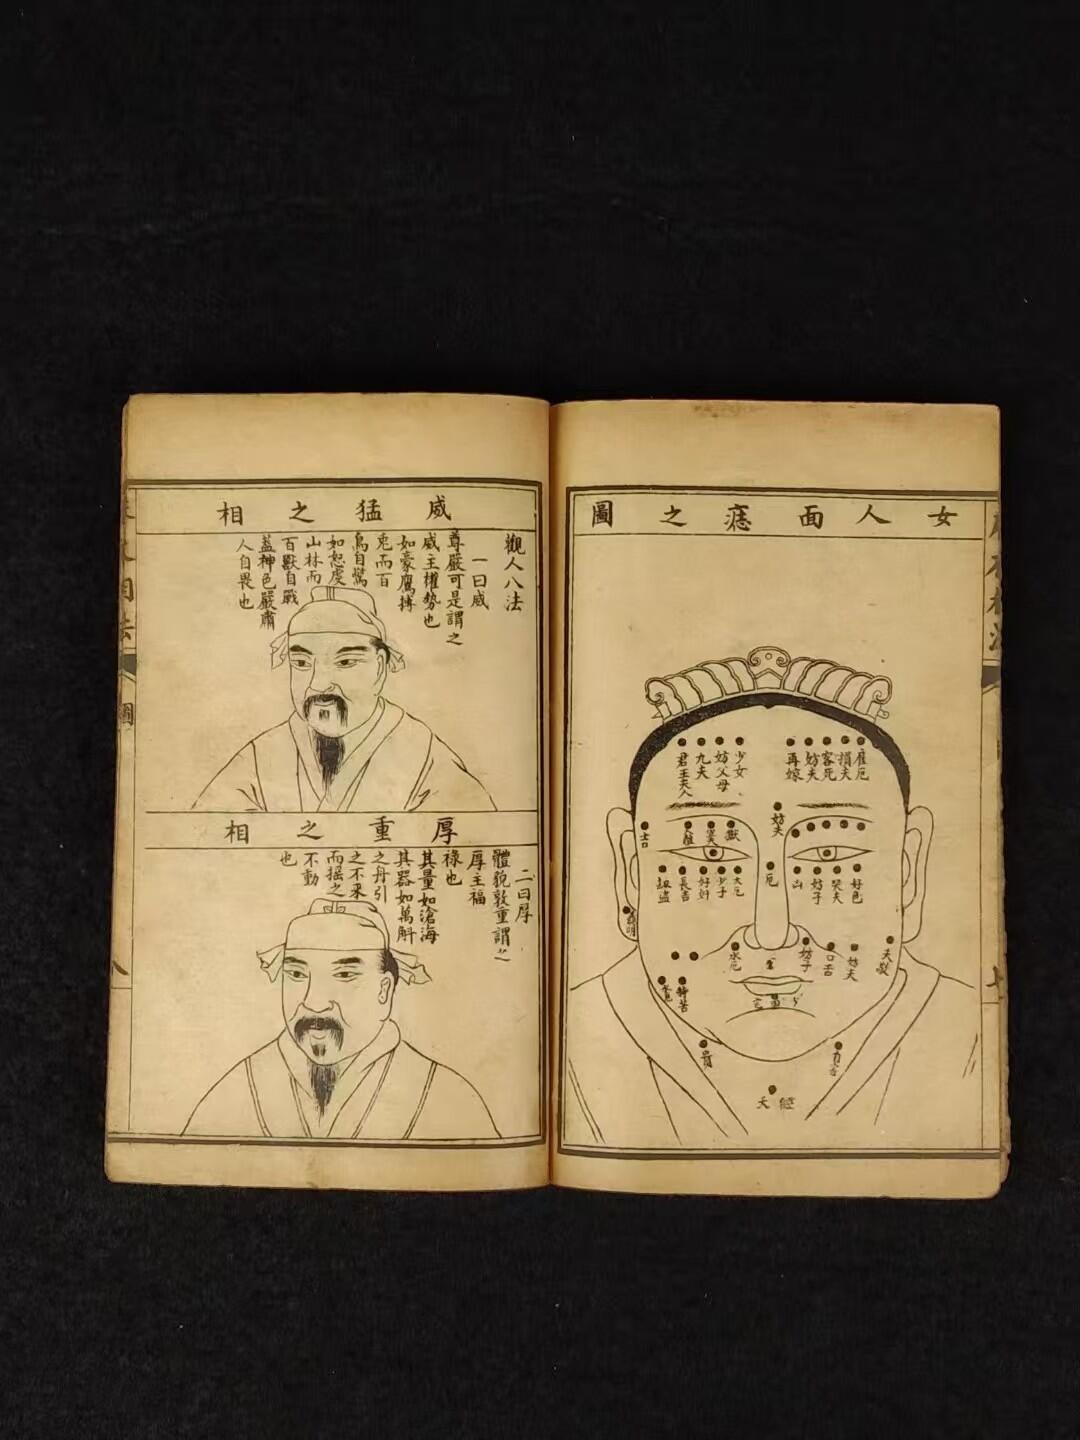 女人面痣之圖
雁厄
損夫
客死
妨夫
再嫁
少女
妨父母
九夫
君王夫人
妨夫
吉
厄
好色
哭夫
妨子
山
大厄
少子
好奸
長吉
聰明
夫敬
妨夫
口舌
妨子
水厄
威猛之相
觀人八法
一曰威
尊嚴可是謂之
威主權勢也
如豪鷹搏
兎而百
鳥自驚
如怒虎
山林而
百獸自戰
蓋神色嚴肅
人自畏也
厚重之相
二曰厚
體貌敦重謂之
厚主福
祿也
其量如滄海
其器如萬斛
之舟引
之不來
而揺之
不動
也
圖
八